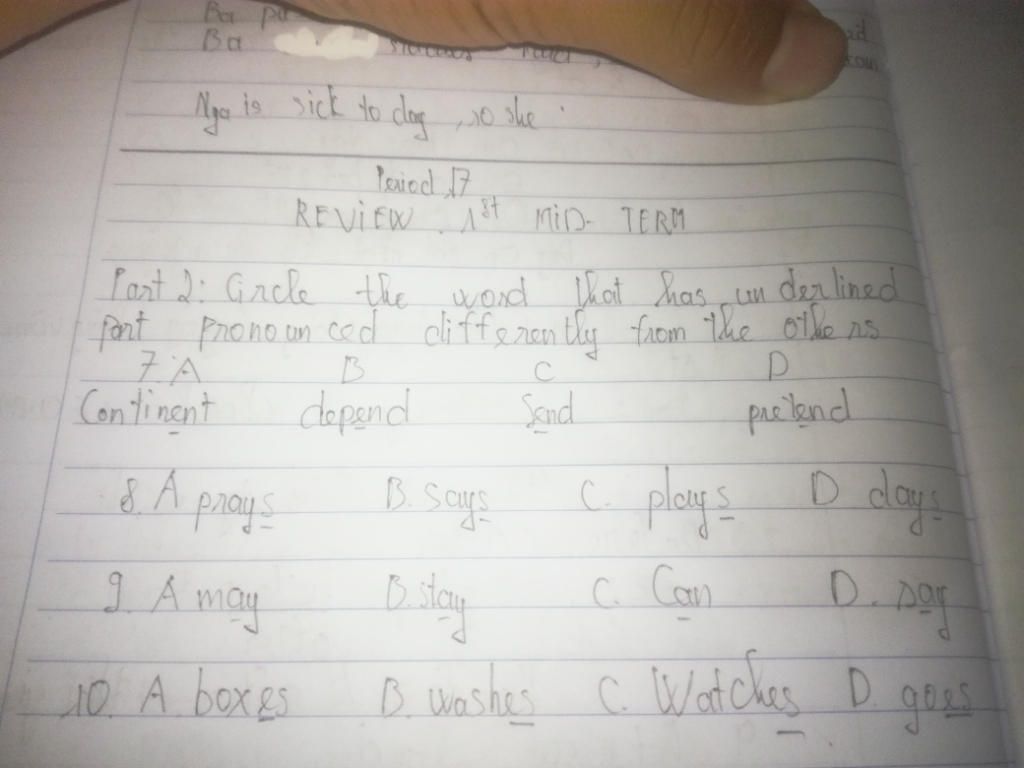 Ba
Ba
Nga is sick to day, so she
Period 17
REVIEW. 1st MID- TERM
Part 2: Circle the word that has underlined
part pronounced differently from the others
7. A B C D
Continent depend Send pretend
8. A prays B. says C. plays D days
9. A may B. stay C. Can D. say
10. A boxes B. washes C. Watches D. goes